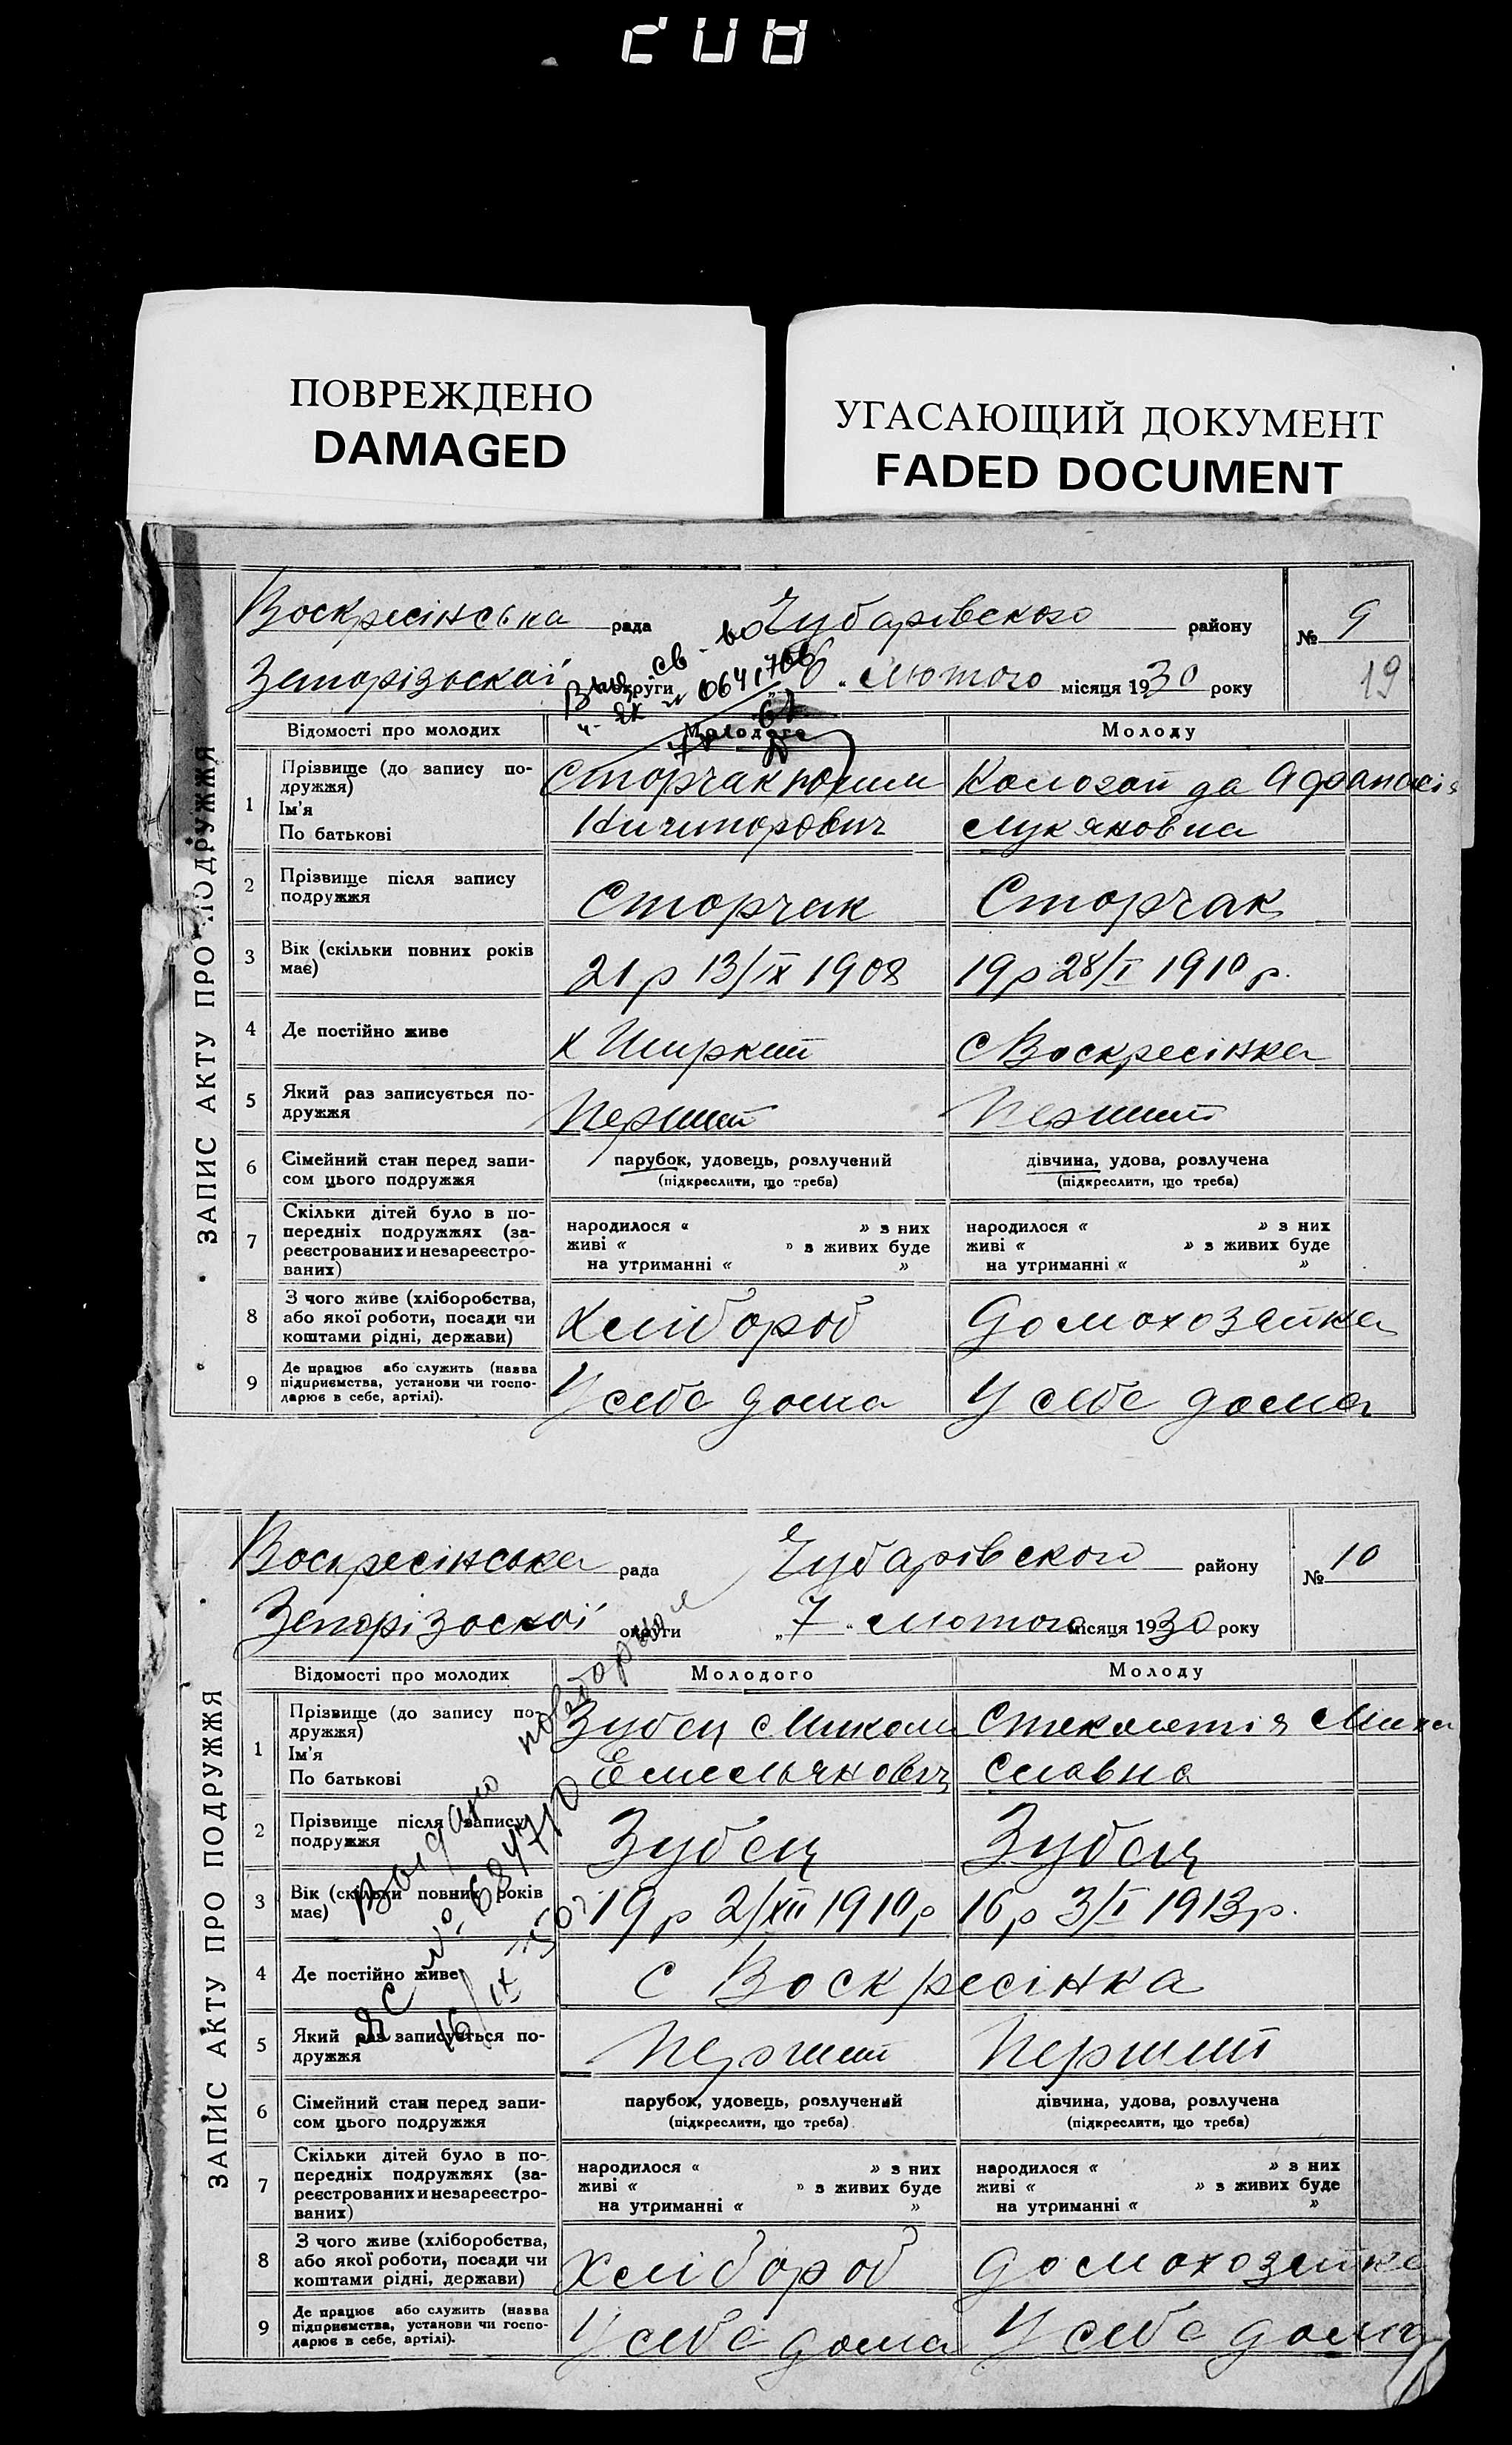 208
ПОВРЕЖДЕНО
DAMAGED
УГАСАЮЩИЙ ДОКУМЕНТ
FADED DOCUMENT
ЗАПИС АКТУ ПРО ПОДРУЖЖЯ
Воскресінська рада Чубарівского району № 9
Запорізоскої округи „6" лютого місяця 1930 року 19
св-во
ЯК № 0641706
Відомості про молодих Молодого Молоду
1 Прізвище (до запису подружжя) Сторчак Юхим
Ім'я
По батькові Ничипорович
Афанасія
Лукяновна
2 Прізвище після запису подружжя Сторчак Сторчак
3 Вік (скільки повних років має) 21 р 13/IX 1908 19 р 28/I 1910 р.
4 Де постійно живе х Ширкий с Воскресінка
5 Який раз записується подружжя Перший Перший
6 Сімейний стан перед записом цього подружжя парубок, удовець, розлучений дівчина, удова, розлучена
(підкреслити, що треба) (підкреслити, що треба)
7 Скільки дітей було в попередніх подружжях (зареєстрованих и незареєстрованих)
народилося « » з них народилося « » з них
живі « » з живих буде живі « » з живих буде
на утриманні « » на утриманні « »
8 З чого живе (хліборобства, або якої роботи, посади чи коштами рідні, держави) Хлібороб Домохозяйка
9 Де працює або служить (назва підприємства, установи чи господарює в себе, артілі). У себе дома У себе дома
ЗАПИС АКТУ ПРО ПОДРУЖЖЯ
Воскресінська рада Чубарівского району № 10
Запорізоскої округи „7" лютого місяця 1930 року
Выдано повторное
ЯС № 684710
16/IX 50 г
Відомості про молодих Молодого Молоду
1 Прізвище (до запису подружжя) Зубец Микола
Ім'я
По батькові Емельянович
2 Прізвище після запису подружжя Зубец Зубец
3 Вік (скільки повних років має) 19 р 2/XII 1910 р 16 р 3/I 1913 р.
4 Де постійно живе с Воскресінка
5 Який раз записується подружжя Перший Перший
6 Сімейний стан перед записом цього подружжя парубок, удовець, розлучений дівчина, удова, розлучена
(підкреслити, що треба) (підкреслити, що треба)
7 Скільки дітей було в попередніх подружжях (зареєстрованих и незареєстрованих)
народилося « » з них народилося « » з них
живі « » з живих буде живі « » з живих буде
на утриманні « » на утриманні « »
8 З чого живе (хліборобства, або якої роботи, посади чи коштами рідні, держави) Хлібороб домохозяйка
9 Де працює або служить (назва підприємства, установи чи господарює в себе, артілі). У себе дома У себе дома